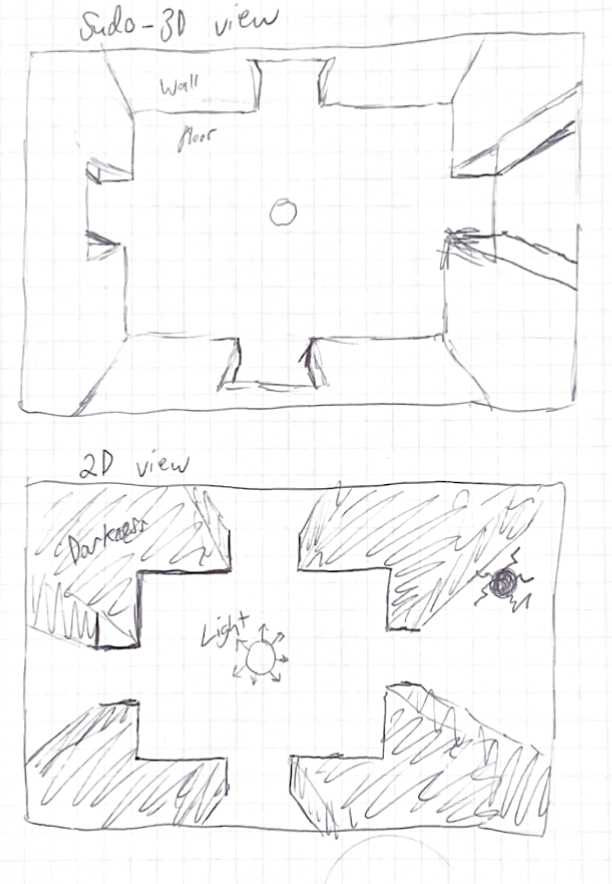 Sudo-3D view
Wall
floor
2D view
Darkness
Light